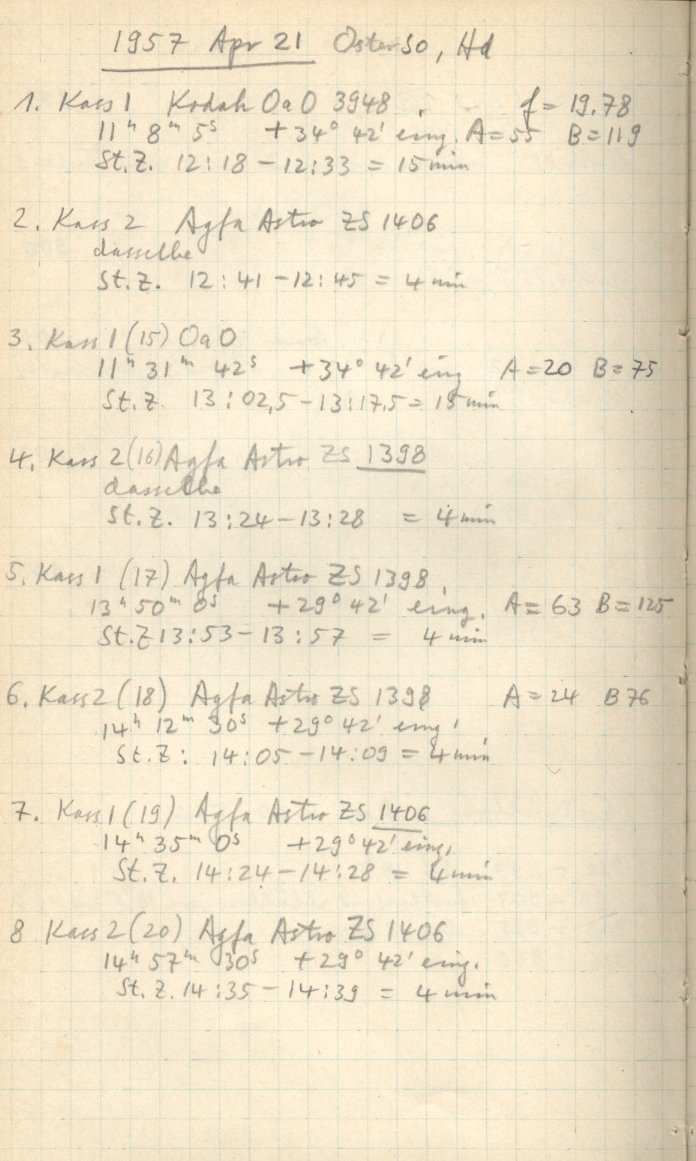 1957 Apr 21 Osterso, Hd
1. Kass 1 Kodak OaO 3948. f = 19.78
11ʰ 8ᵐ 5ˢ +34° 42' eing. A=55 B=119
St.Z. 12:18 – 12:33 = 15 min
2. Kass 2 Agfa Astro ZS 1406
dasselbe
St.Z. 12:41 – 12:45 = 4 min
3. Kass 1 (15) OaO
11ʰ 31ᵐ 42ˢ +34° 42' eing A=20 B=75
St.Z. 13:02,5 – 13:17,5 = 15 min
4. Kass 2 (16) Agfa Astro ZS 1398
dasselbe
St.Z. 13:24 – 13:28 = 4 min
5. Kass 1 (17) Agfa Astro ZS 1398
13ʰ 50ᵐ 0ˢ +29° 42' eing. A=63 B=125
St.Z 13:53 – 13:57 = 4 min
6. Kass 2 (18) Agfa Astro ZS 1398 A=24 B 76
14ʰ 12ᵐ 30ˢ +29° 42' eing.
St.Z: 14:05 – 14:09 = 4 min
7. Kass 1 (19) Agfa Astro ZS 1406
14ʰ 35ᵐ 0ˢ +29° 42' eing.
St.Z. 14:24 – 14:28 = 4 min
8 Kass 2 (20) Agfa Astro ZS 1406
14ʰ 57ᵐ 30ˢ +29° 42' eing.
St.Z. 14:35 – 14:39 = 4 min